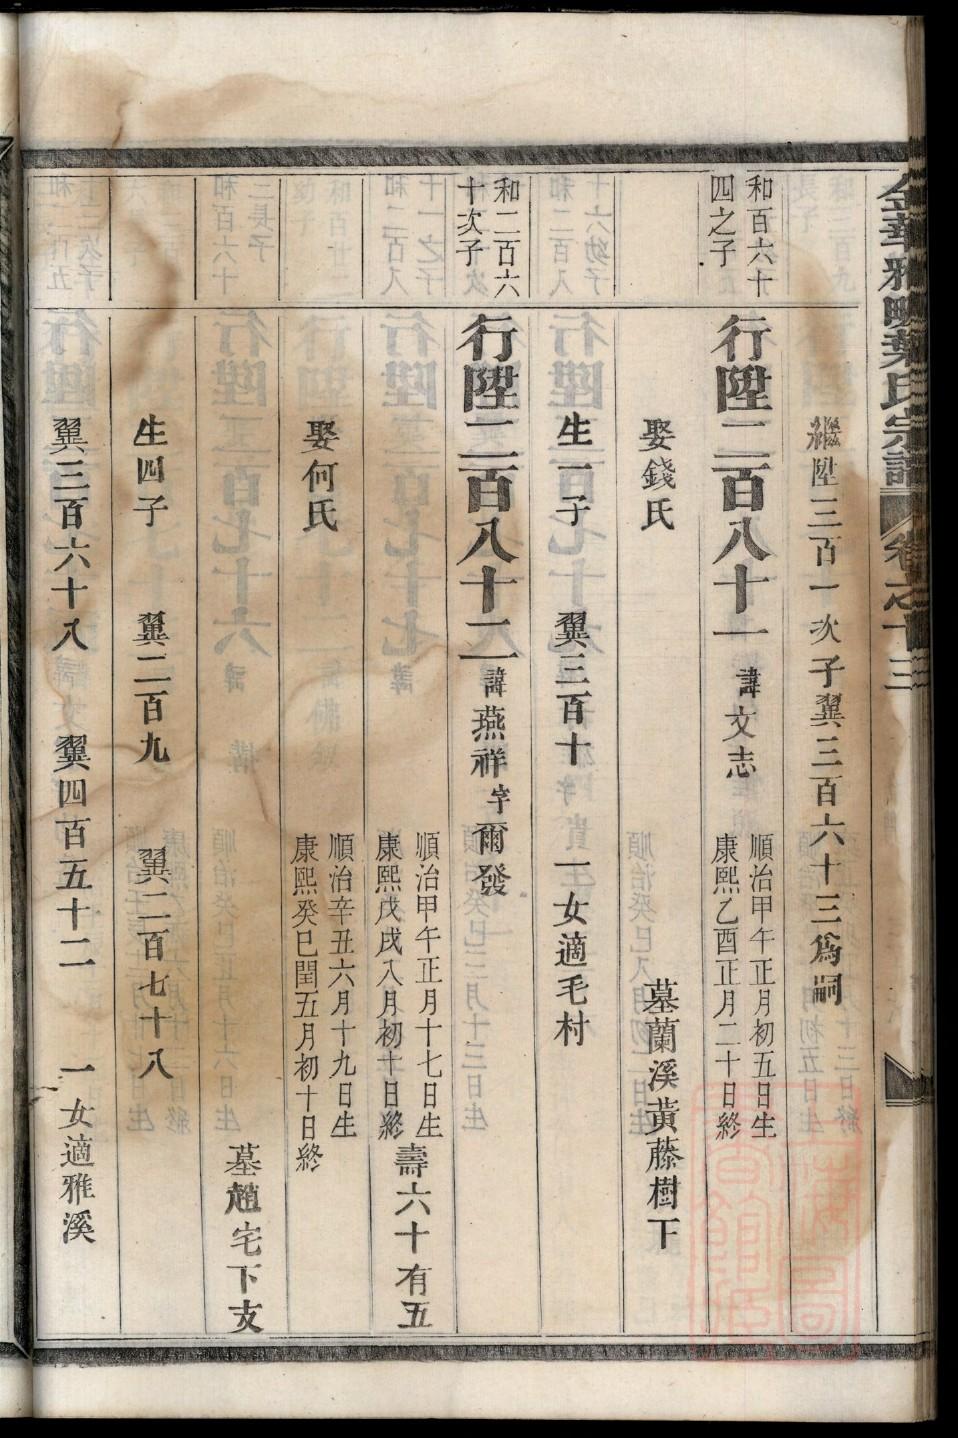 金華雅畈葉氏宗譜 卷之十三
繼陞三百一次子翼三百六十三爲嗣
和百六十四之子
行陞二百八十一 諱文志 順治甲午正月初五日生 康熙乙酉正月二十日終
娶錢氏 墓蘭溪黃藤樹下
生一子 翼三百十 一女適毛村
和二百六十次子
行陞二百八十二 諱燕祥 字爾發
順治甲午正月十七日生 康熙戊戌八月初十日終 壽六十有五
娶何氏 順治辛丑六月十九日生 康熙癸巳閏五月初十日終
墓趙宅下支
生四子 翼二百九 翼二百七十八
翼三百六十八 翼四百五十二 一女適雅溪